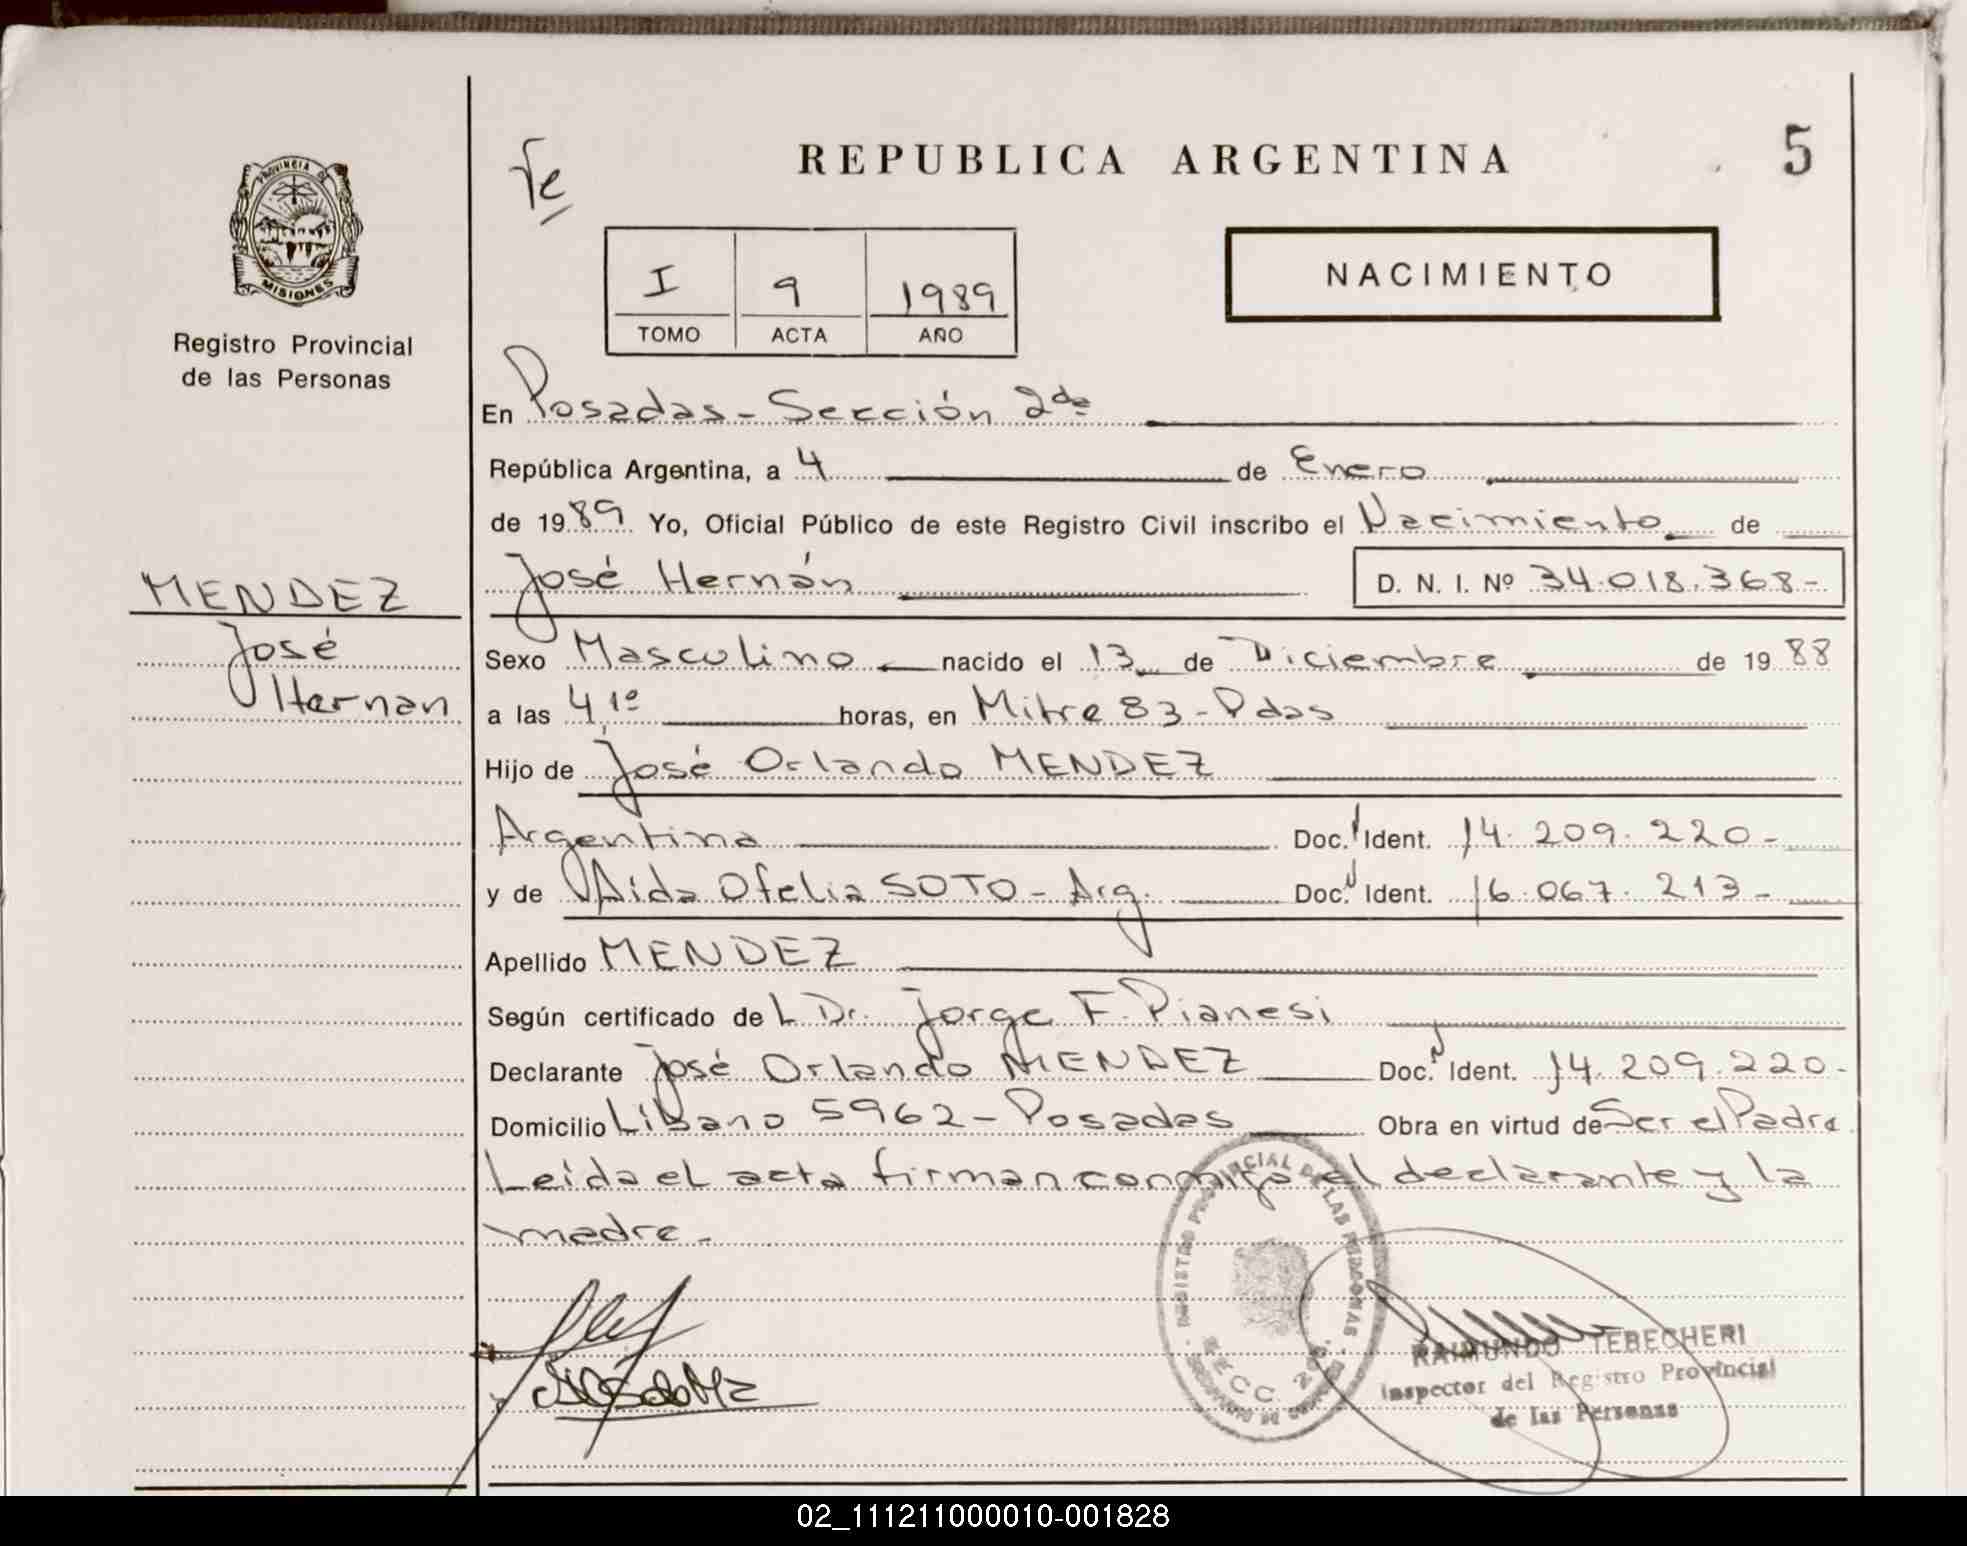 PROVINCIA DE
MISIONES
Registro Provincial
de las Personas
MENDEZ
José
Hernan
REPUBLICA ARGENTINA
5
I 9 1989
TOMO ACTA AÑO
NACIMIENTO
En Posadas - Sección 2da
República Argentina, a 4 de Enero
de 1989 Yo, Oficial Público de este Registro Civil inscribo el Nacimiento de
José Hernán D. N. I. Nº 34.018.368-
Sexo Masculino nacido el 13 de Diciembre de 1988
a las 4 horas, en Mitre 83 - Pdas
Hijo de José Orlando MENDEZ
Argentina Doc. Ident. 14.209.220-
y de Aída Ofelia SOTO - Arg. Doc. Ident. 16.067.213-
Apellido MENDEZ
Según certificado de L Dr. Jorge F. Pianesi
Declarante José Orlando MENDEZ Doc. Ident. 14.209.220-
Domicilio Líbano 5962 - Posadas Obra en virtud de Ser el Padre
Leída el acta firman conmigo el declarante y la
madre -
REGISTRO PROVINCIAL DE LAS PERSONAS
RAIMUNDO TEBECHERI
Inspector del Registro Provincial
de las Personas
02_111211000010-001828